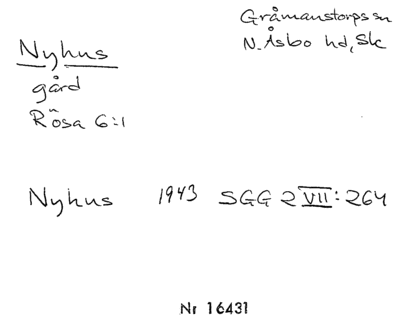 Gråmanstorps sn
N. Åsbo hd, Sk
Nyhus
gård
Rösa 6:1
Nyhus 1943 SGG 2 VII: 264
Nr 16431